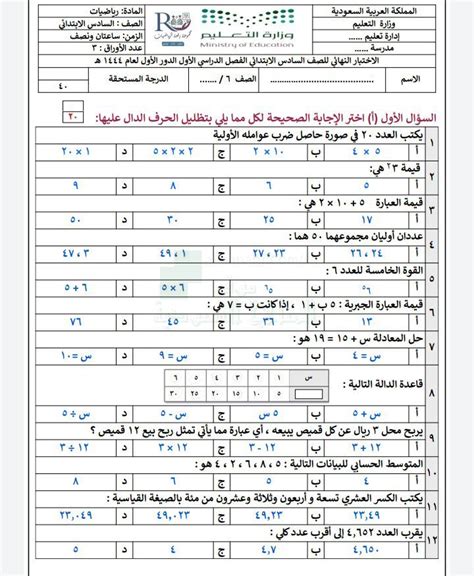 المملكة العربية السعودية
وزارة التعليم
إدارة تعليم ......
مدرسة ......
وزارة التعليم
Ministry of Education
المادة: رياضيات
الصف : السادس الابتدائي
الزمن: ساعتان ونصف
عدد الأوراق : ٣
الاختبار النهائي للصف السادس الابتدائي الفصل الدراسي الأول الدور الأول لعام ١٤٤٤ هـ
الاسم الصف ٦ / الدرجة المستحقة ٤٠
السؤال الأول (أ) اختر الإجابة الصحيحة لكل مما يلي بتظليل الحرف الدال عليها: ٢٠
١ يكتب العدد ٢٠ في صورة حاصل ضرب عوامله الأولية
أ ٤ × ٥ ب ١٠ × ٢ ج ٢ × ٢ × ٥ د ٢٠ × ١
٢ قيمة ٢٣ هي:
أ ٥ ب ٦ ج ٨ د ٩
٣ قيمة العبارة ٥ + ١٠ × ٢ هي :
أ ١٧ ب ٢٥ ج ٣٠ د ٥٠
٤ عددان أوليان مجموعهما ٥٠ هما :
أ ٢٤ ، ٢٦ ب ٢٣ ، ٢٧ ج ١ ، ٤٩ د ٣ ، ٤٧
٥ القوة الخامسة للعدد ٦ :
أ ج ٦ × ٥ د ٦ + ٥
٦ قيمة العبارة الجبرية : ٥ ب + ١ ، إذا كانت ب = ٧ هي :
أ ١٣ ب ٣٦ ج ٤٥ د ٧٦
٧ حل المعادلة س + ١٥ = ١٩ هو :
أ س = ٤ ب س = ٥ ج س = ٩ د س = ١٠
٨ قاعدة الدالة التالية :
س ١ ٢ ٣ ٤ ٥ ٦
٥ ١٠
أ س + ٥ ب ٥ س ج س - ٥ د س ÷ ٥
٩ يربح محل ٣ ريال عن كل قميص يبيعه ، أي عبارة مما يأتي تمثل ربح بيع ١٢ قميص ؟
أ ١٢ + ٣ ب ١٢ - ٣ ج ١٢ × ٣ د ١٢ ÷ ٣
١٠ المتوسط الحسابي للبيانات التالية : ٥ ، ٨ ، ٦ ، ٢ ، ٤ هو :
أ ٢ ب ٥ ج ٦ د ٨
١١ يكتب الكسر العشري تسعة و أربعون وثلاثة وعشرون من مئة بالصيغة القياسية :
أ ب ٤٩,٢٣ ج ٤٩,٠٢٣ د ٢٣,٠٤٩
١٢ يقرب العدد ٤,٦٥٢ إلى أقرب عدد كلي :
أ ٤,٦٥٠ ب ٤,٧ ج ٤ د ٥